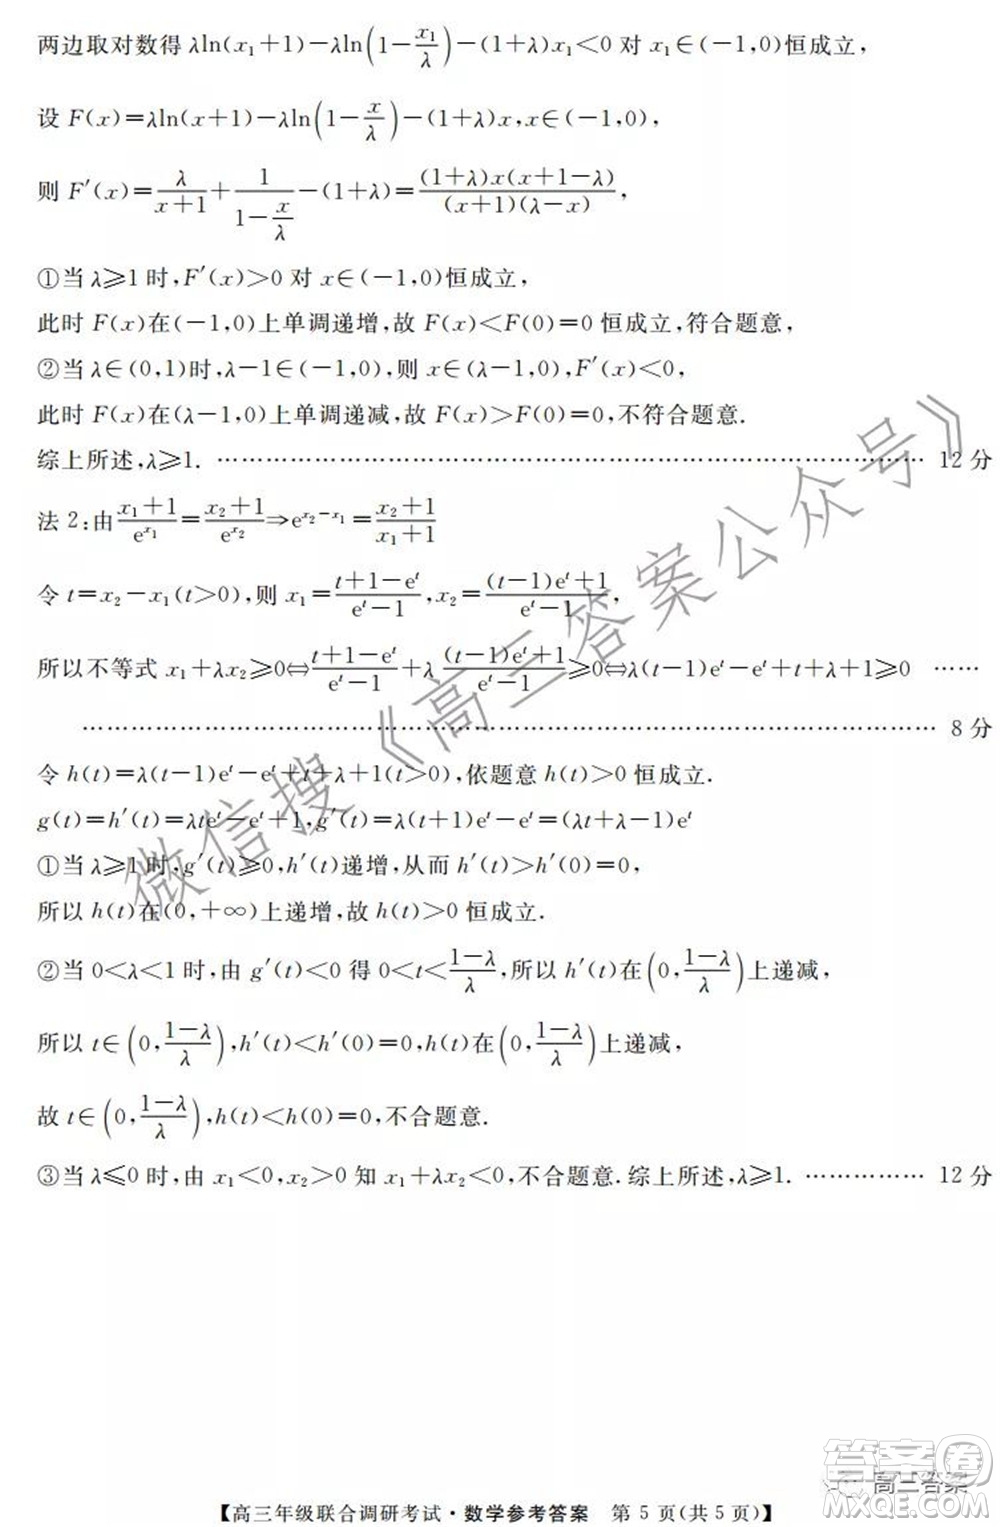 两边取对数得 λln(x₁+1)−λln(1−x₁/λ)−(1+λ)x₁<0 对 x₁∈(−1,0)恒成立，
设 F(x)=λln(x+1)−λln(1−x/λ)−(1+λ)x,x∈(−1,0)，
则 F′(x)=λ/(x+1)+1/(1−x/λ)−(1+λ)=(1+λ)x(x+1−λ)/((x+1)(λ−x))，
①当 λ⩾1 时,F′(x)>0 对 x∈(−1,0)恒成立，
此时 F(x)在(−1,0)上单调递增,故 F(x)<F(0)=0 恒成立,符合题意，
②当 λ∈(0,1)时,λ−1∈(−1,0),则 x∈(λ−1,0),F′(x)<0，
此时 F(x)在(λ−1,0)上单调递减,故 F(x)>F(0)=0,不符合题意.
综上所述,λ⩾1. …………………………………………………… 12 分
法 2:由(x₁+1)/e^(x₁)=(x₂+1)/e^(x₂)⇒e^(x₂−x₁)=(x₂+1)/(x₁+1)
令 t=x₂−x₁(t>0),则 x₁=(t+1−e^t)/(e^t−1),x₂=((t−1)e^t+1)/(e^t−1)，
所以不等式 x₁+λx₂⩾0⇔(t+1−e^t)/(e^t−1)+λ((t−1)e^t+1)/(e^t−1)⩾0⇔λ(t−1)e^t−e^t+t+λ+1⩾0 ……
…………………………………………………………………… 8 分
令 h(t)=λ(t−1)e^t−e^t+t+λ+1(t>0),依题意 h(t)>0 恒成立.
g(t)=h′(t)=λte^t−e^t+1,g′(t)=λ(t+1)e^t−e^t=(λt+λ−1)e^t
①当 λ⩾1 时,g′(t)⩾0,h′(t)递增,从而 h′(t)>h′(0)=0，
所以 h(t)在(0,+∞)上递增,故 h(t)>0 恒成立.
②当 0<λ<1 时,由 g′(t)<0 得 0<t<(1−λ)/λ,所以 h′(t)在(0,(1−λ)/λ)上递减，
所以 t∈(0,(1−λ)/λ),h′(t)<h′(0)=0,h(t)在(0,(1−λ)/λ)上递减，
故 t∈(0,(1−λ)/λ),h(t)<h(0)=0,不合题意.
③当 λ⩽0 时,由 x₁<0,x₂>0 知 x₁+λx₂<0,不合题意.综上所述,λ⩾1. …………… 12 分
微信搜《高三答案公众号》
答案圈
高三答案
MXQE.COM
【高三年级联合调研考试·数学参考答案 第 5 页(共 5 页)】